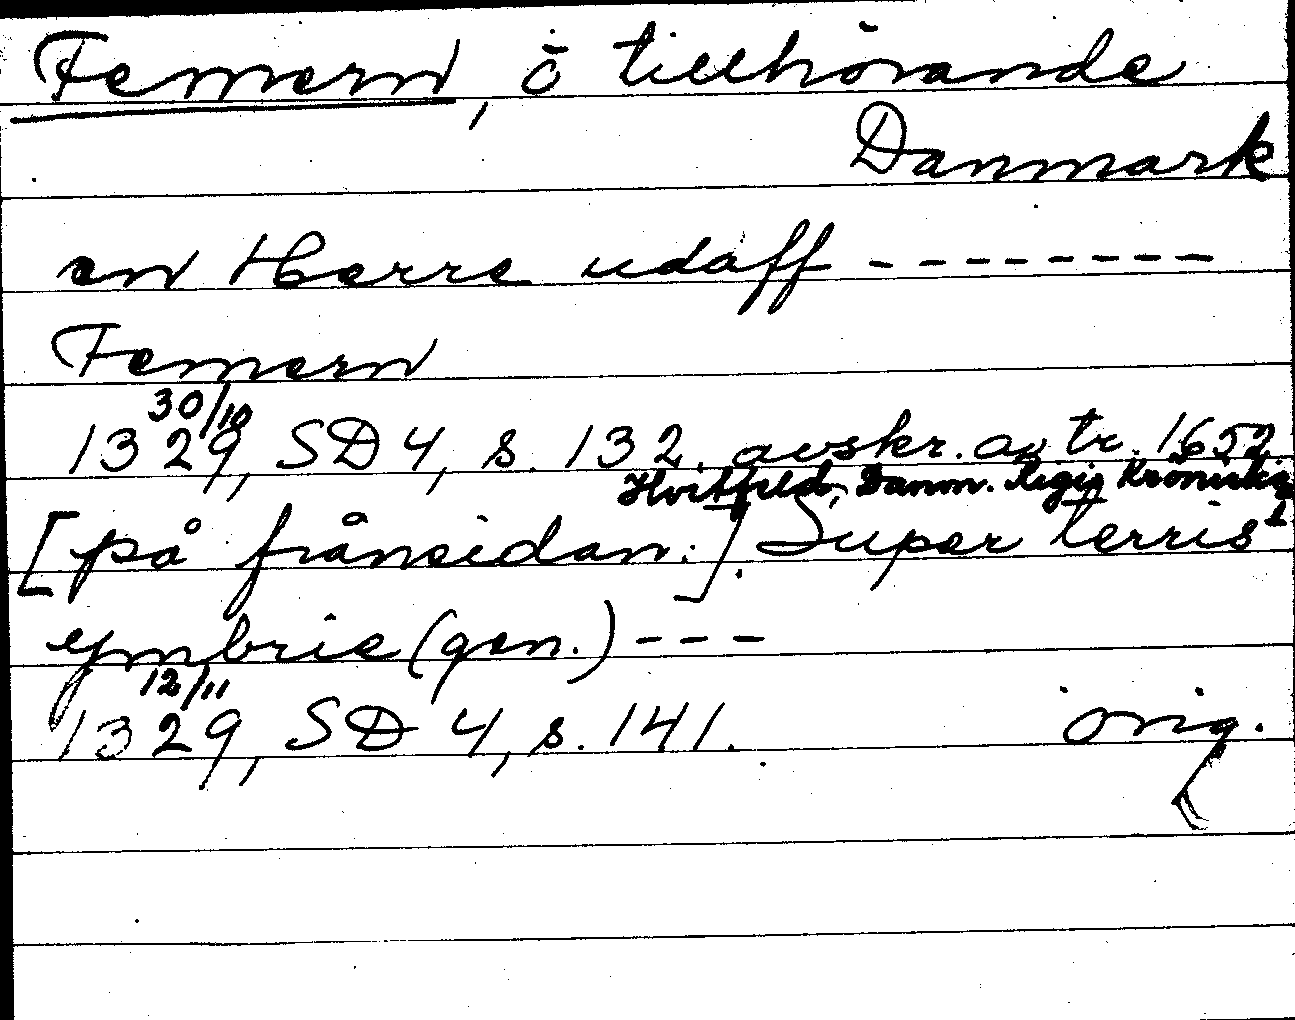 Femern, ö tillhörande
Danmark
en Herre udaff ---------
Femern
1329 30/10, SD 4, s. 132. avskr. av tr. 1652
Hvitfeld, Danm. Regis Krönike
[på frånsidan:]. Super terris 1
ymbrie (gen.) ---
1329 12/11, SD 4, s. 141. orig.